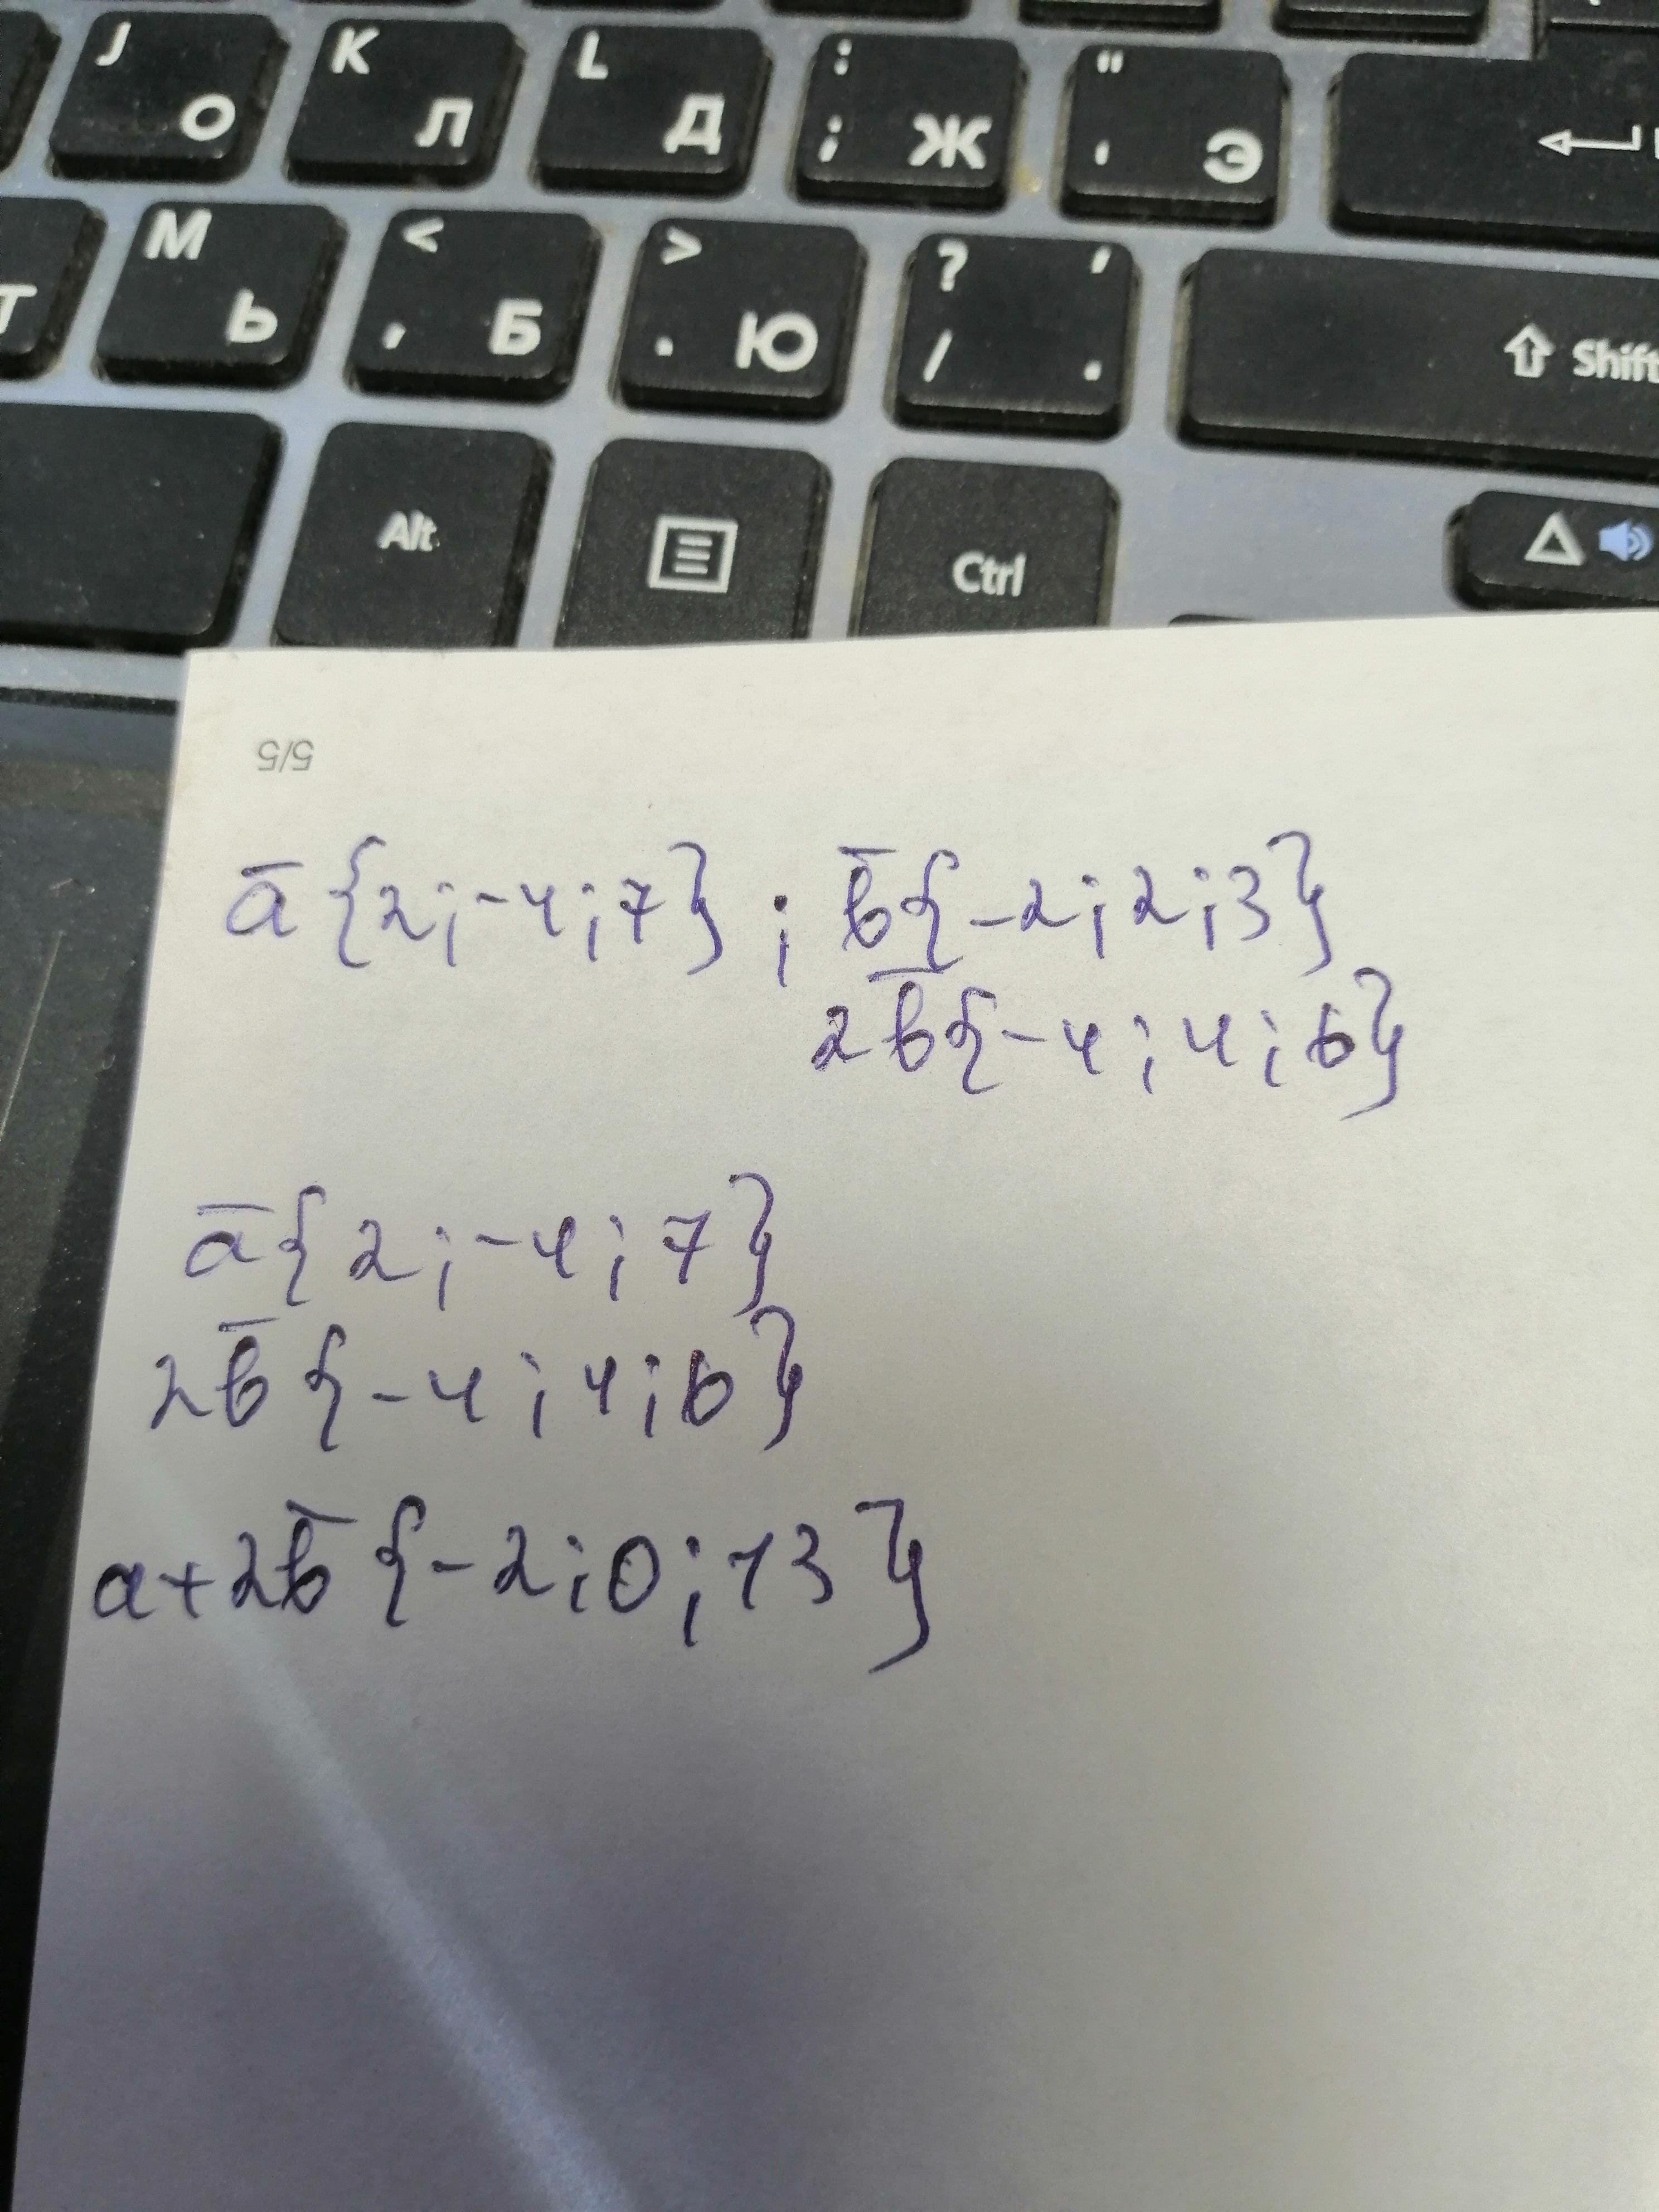 J О K Л L Д : ; Ж " ' Э
Т M Ь < , Б > . Ю ? / , . Shift
Alt Ctrl
5/5
a̅ {2;-4;7} ; b̅{-2;2;3}
2b̅{-4;4;6}
a̅{2;-4;7}
2b̅{-4;4;6}
a+2b̅ {-2;0;13}